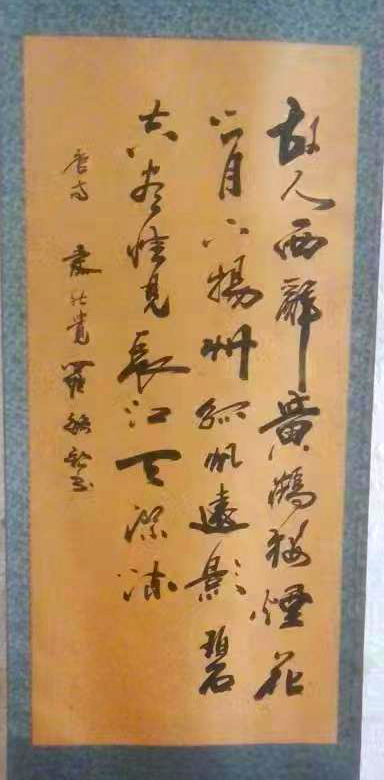 故人西辭黄鶴楼煙花
三月下揚州孤帆遠影碧
空尽惟見長江天際流
唐诗 羅 书